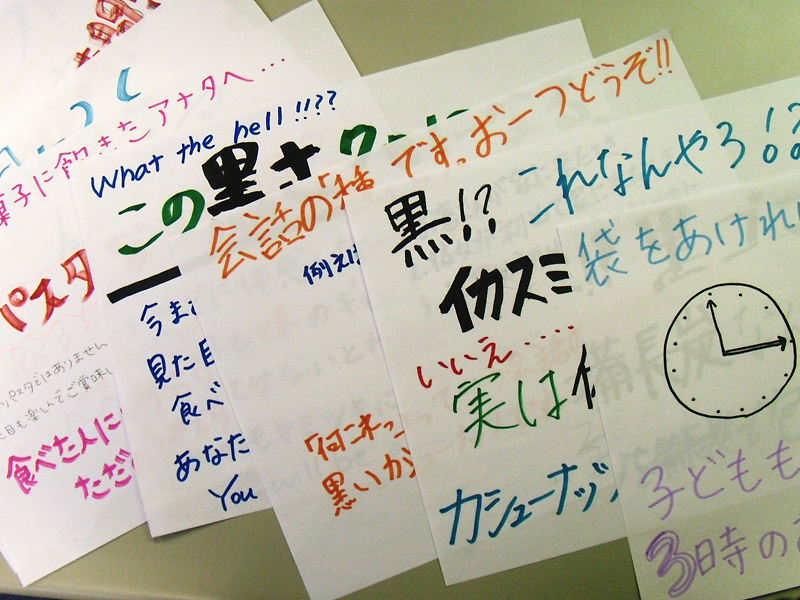 菓子に飽きたアナタへ…
パスタ
パスタではありません
目も楽しんでご賞味
食べた人に
ただ
What the hell!!??
この黒さ
今ま
見た目
食べ
あなた
You
会話の「種」です。お一つどうぞ!!
例えば
「何コレっ
黒いカシ
黒!?
これなんやろ!?
イカスミ
いいえ.....
実は備
カシューナッツ
袋をあければ
子どもも
3時のお